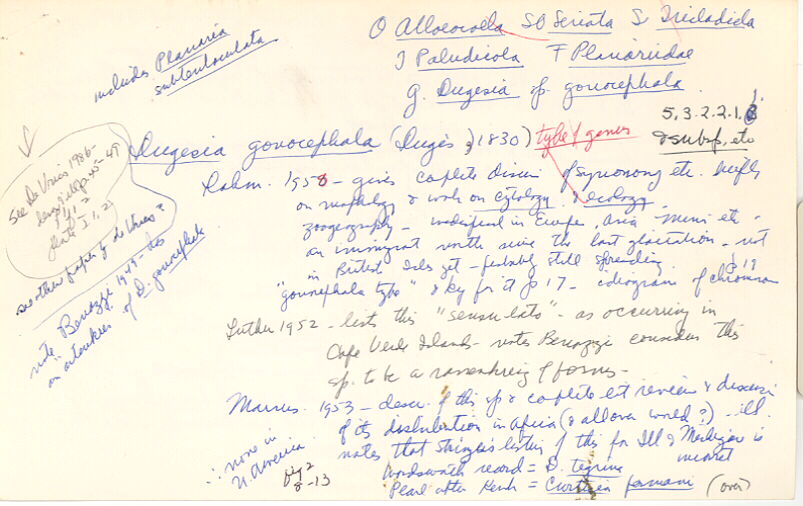 O Alloeocoela SO Seriata S. Tricladida
I Paludicola F Planariidae
g. Dugesia sp. gonocephala
includes Planaria
subtentaculata
5,3.2.2.1.
& subsp, etc
Dugesia gonocephala (Dugès, 1830) type of genus
See De Vries 1986-
45-49
plate 1, 2
see other papers by de Vries?
note Benazzi 1949-
of D. gonocephala
1958 - gives complete discu of synonomy etc.
on morphology & work on cytology & ecology
zoogeography - widespread in Europe, Asia Minor etc -
an immigrant north since the last glaciation - not
in British Isles yet - probably still spreading.
p 19
"gonocephala type" & key for it p 17 - idiogram of chromosom
Luther 1952 - lists this "sensu lato" - as occurring in
Cape Verde Islands - notes Benazzi considers this
sp. to be a rassenkreis of forms -
Marcus 1953 - descr. of this sp & complete lit review & discussi
of its distribution in Africa (& all over world?) - ill.
notes that listing of this for Ill & Michigan is
incorrect
∴ none in
N. America
fig 2
8-13
Wordsworth record = D. tigrina
Pearl after Kenk = Curtisia foremani (over)